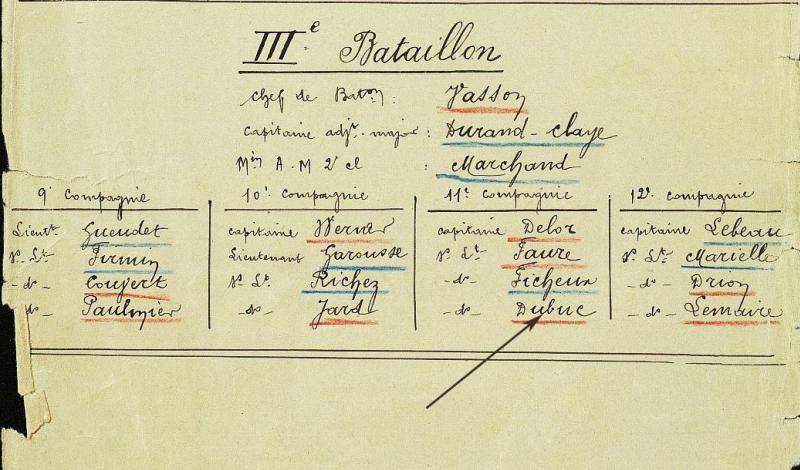 IIIe Bataillon
Chef de Baton : Vasson
Capitaine adjt major : Durand-Claye
Min A.M 2e cl : Marchand
9e Compagnie
Lieutt Gueudet
S. Lt Firmin
- do - Coujert
- do - Paulmier
10e Compagnie
capitaine Werner
Lieutenant Garousse
S. Lt Richez
- do - Jard
11e Compagnie
capitaine Delor
S. Lt Faure
- do - Ficheux
- do - Dubuc
12e compagnie
capitaine Lebeau
S. Lt Marielle
- do - Drion
- do - Lemaire